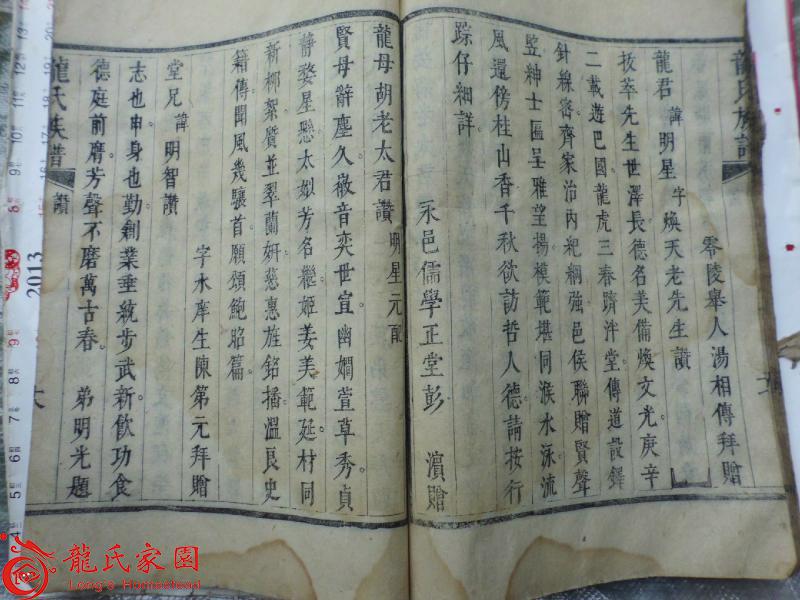 龍氏族譜
零陵舉人湯相傳拜贈
龍君諱明星字煥天老先生讚
拔萃先生世澤長德名美備煥文光庚辛
二載遊巴國龍虎三春躋泮堂傳道設鐸
針線密齊家治內紀綱強邑侯聯贈賢聲
豎紳士匾呈雅望揚模範堪同猴水泳流
風還傍桂山香千秋欲訪哲人德請按行
踪仔細詳
永邑儒學正堂彭 濱贈
龍母胡老太君讚明星元配
賢母辭塵久徽音奕世宜幽嫻萱草秀貞
靜婺星懸太姒芳名繼姬姜美範延材同
新柳絮質並翠蘭妍慈惠旌銘播溫良史
籍傳聞風幾驤首願頌鮑昭篇
字水庠生陳第元拜贈
堂兄諱明智讚
志也申身也勤創業垂統步武新飲功食
德庭前唐芳聲不磨萬古春 弟明光題
龍氏族譜
讚
六
2013
龍氏家園
Long's Homestead